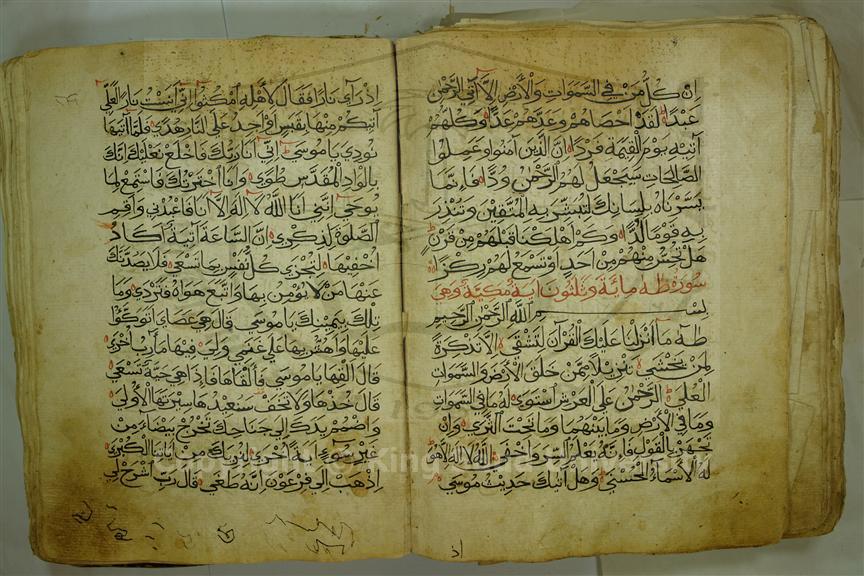 ان كل من في السموات والارض الا اتي الرحمن
عبدا لقد احصاهم وعدهم عدا وكلهم
اتيه يوم القيمة فردا ان الذين آمنوا وعملوا
الصالحات سيجعل لهم الرحمن ودا فانما
يسرناه بلسانك لتبشر به المتقين وتنذر
به قوما لدا وكم اهلكنا قبلهم من قرن
هل تحس منهم من احد او تسمع لهم ركزا
سورة طه مائة وثلثون اية مكية وهي
بسم الله الرحمن الرحيم
طه ما انزلنا عليك القرآن لتشقى الا تذكرة
لمن يخشى تنزيلا ممن خلق الارض والسموات
العلى الرحمن على العرش استوى له ما في السموات
وما في الارض وما بينهما وما تحت الثرى وان
تجهر بالقول فانه يعلم السر واخفى الله لا اله الا هو
له الاسماء الحسنى وهل اتيك حديث موسى
اذ
اذ رآى نارا فقال لاهله امكثوا اني آنست نارا لعلي
آتيكم منها بقبس او اجد على النار هدى فلما اتيها
نودي يا موسى اني انا ربك فاخلع نعليك انك
بالواد المقدس طوى وانا اخترتك فاستمع لما
يوحى انني انا الله لا اله الا انا فاعبدني واقم
الصلوة لذكري ان الساعة آتية اكاد
اخفيها لتجزى كل نفس بما تسعى فلا يصدنك
عنها من لا يؤمن بها واتبع هواه فتردى وما
تلك بيمينك يا موسى قال هي عصاي اتوكؤا
عليها واهش بها على غنمي ولي فيها مآرب اخرى
قال القها يا موسى فالقاها فاذا هي حية تسعى
قال خذها ولا تخف سنعيدها سيرتها الاولى
واضمم يدك الى جناحك تخرج بيضاء من
غير سوء اية اخرى لنريك من آياتنا الكبرى
اذهب الى فرعون انه طغى قال رب اشرح لي